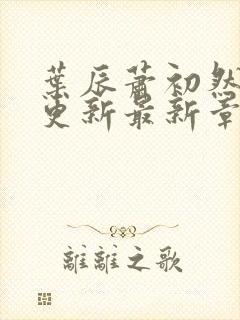 葉辰蕭初然
更新最新章
離離之歌